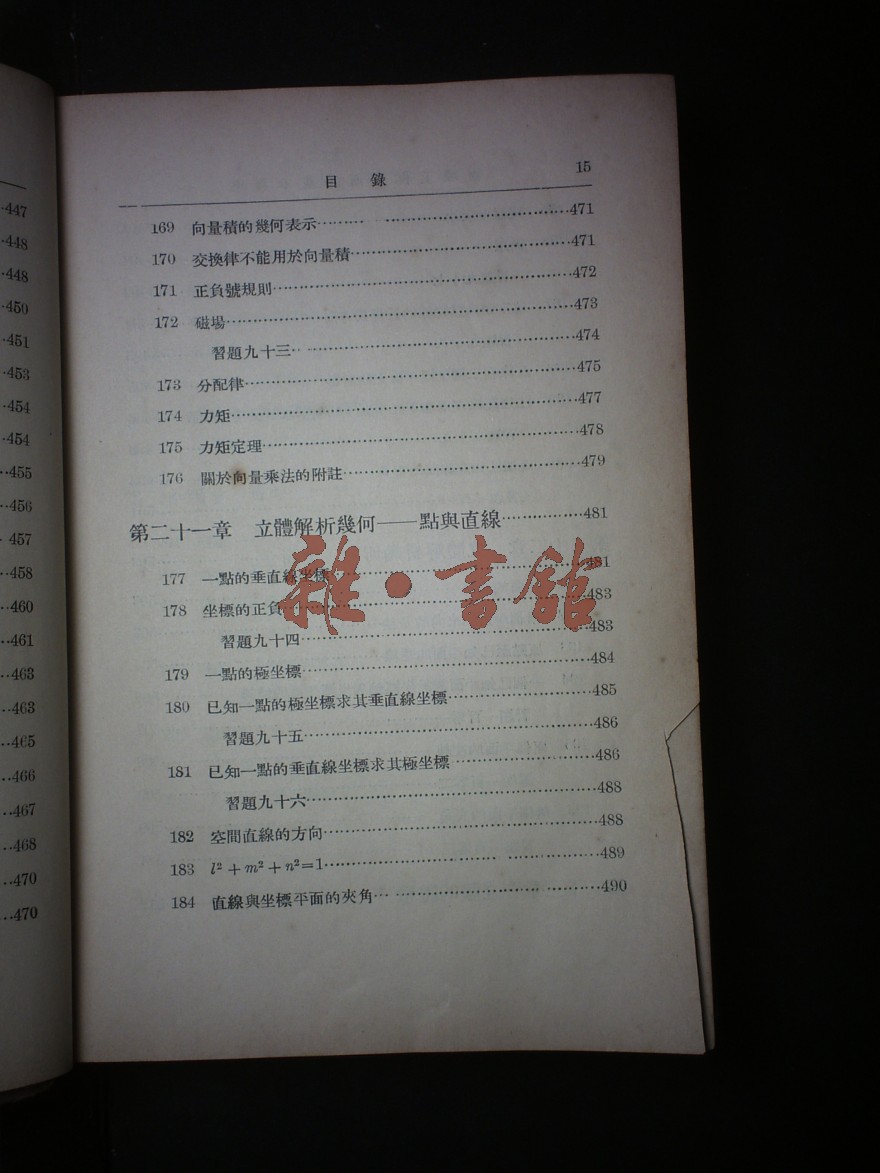 ·447
·448
·448
·450
·451
·453
·454
·454
··455
·456
457
··458
··460
··461
··463
··463
··465
··466
··467
··468
··470
··470
目 錄 15
169 向量積的幾何表示……471
170 交換律不能用於向量積……471
171 正負號規則……472
172 磁場……473
習題九十三……474
173 分配律……475
174 力矩……477
175 力矩定理……478
176 關於向量乘法的附註……479
第二十一章 立體解析幾何——點與直線……481
177 一點的垂直線坐標……481
178 坐標的正負……483
習題九十四……483
179 一點的極坐標……484
180 已知一點的極坐標求其垂直線坐標……485
習題九十五……486
181 已知一點的垂直線坐標求其極坐標……486
習題九十六……488
182 空間直線的方向……488
183 l²+m²+n²=1……489
184 直線與坐標平面的夾角……490
雜·書館